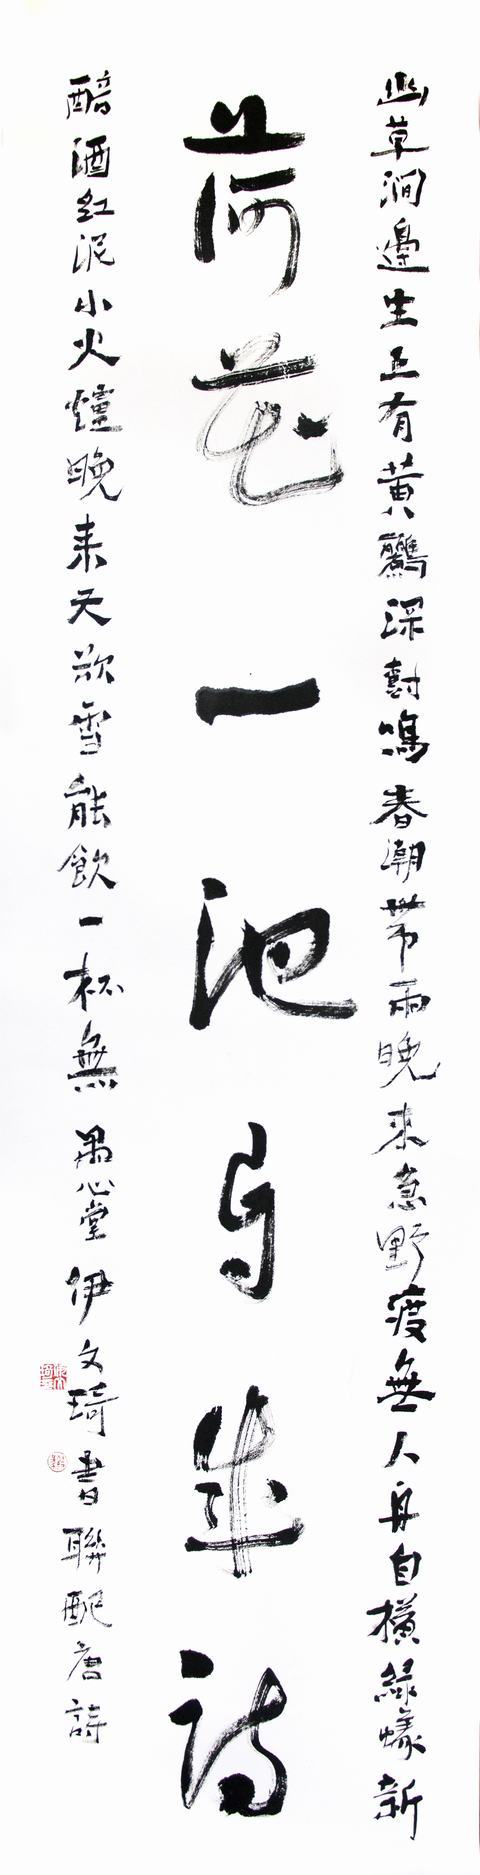 幽草澗邊生正有黃鸝深對鳴春潮帶雨晚来急野渡無人舟自橫綠蟻新
荷花一池詩
醅酒紅泥小火爐晚来天欲雪能飲一杯無 愚心堂 伊文琦書聯配唐詩